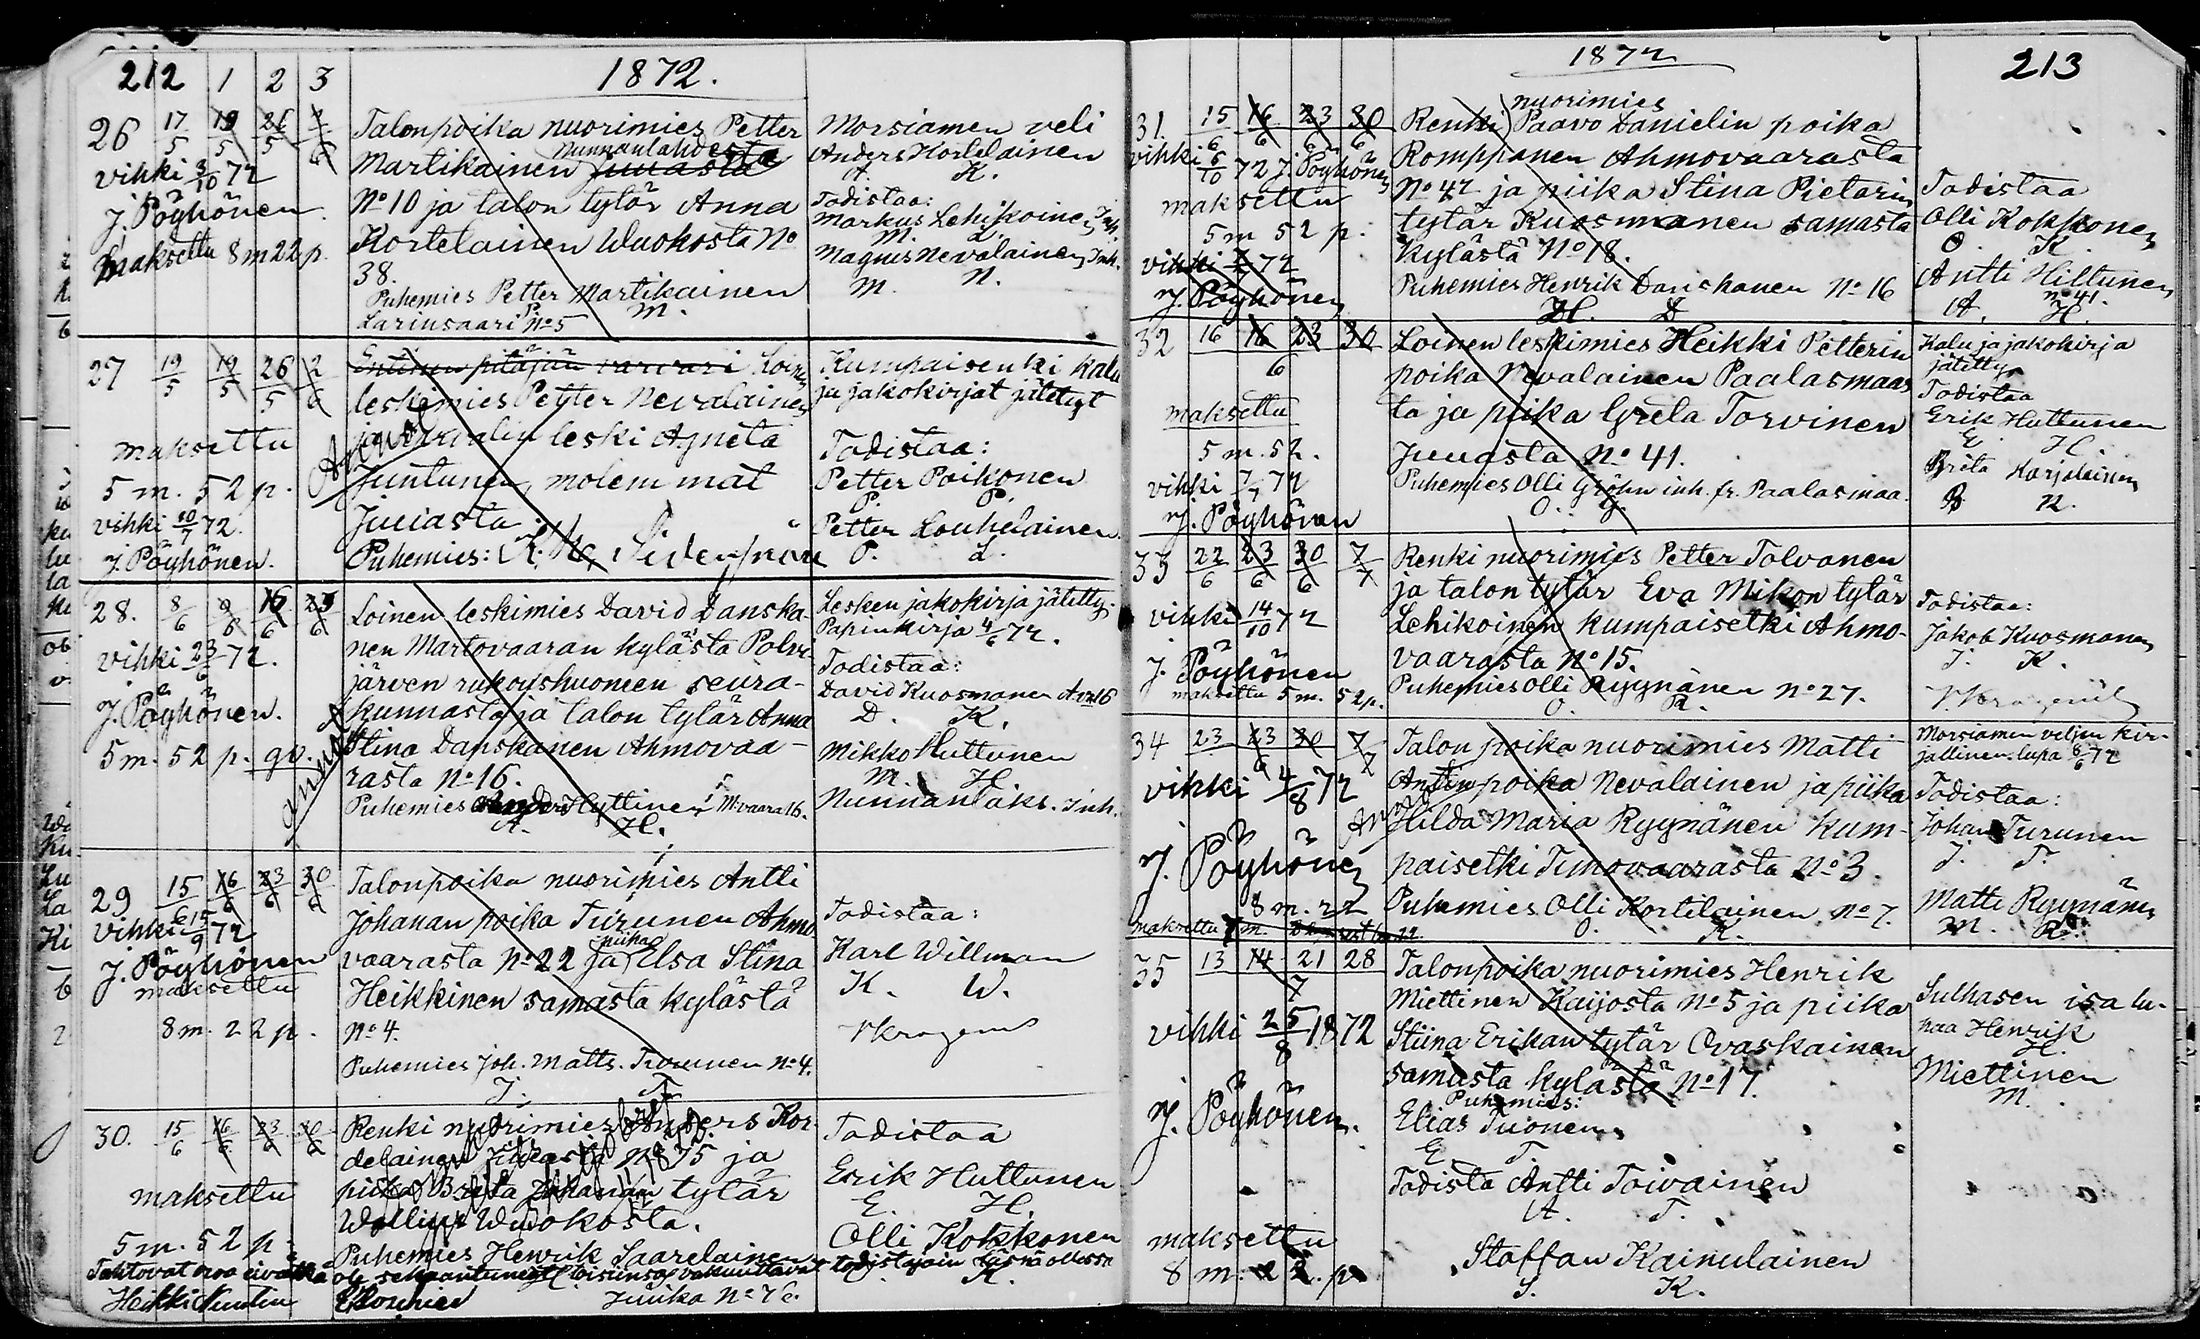 212 1 2 3 1872.
26 17/5 19/5 26/5 2/6
vihki 3/10 72
J. Pöyhönen.
maksettu 8 m 22 p.
Talonpoika nuorimies Petter
Nunnanlahdesta
Martikainen Juuasta
No 10 ja talon tytär Anna
Kortelainen Wuokosta No
38.
Puhemies Petter Martikainen
P. M.
Larinsaari No 5
Morsiamen veli
Anders Kortelainen
A. K.
Todistaa:
Markus Lehikoinen, Inh.
M. L.
Magnus Nevalainen, Inh.
M. N.
27 19/5 19/5 26/5 2/6
maksettu
5 m. 52 p.
vihki 10/7 72.
J. Pöyhönen.
Entinen pitäjän varvari Loinen
leskimies Petter Nevalainen
ja leski Agneta
Juntunen, molemmat
Juuasta.
Puhemies:
Kumpaisenki kalu
ja jakokirjat jätetyt
Todistaa:
Petter Poikonen
P. P.
Petter Louhelainen
P. L.
28. 8/6 9/6 16/6 23/6
vihki 23/6 72.
J. Pöyhönen.
5 m. 52 p.
Loinen leskimies David Danska-
nen Martovaaran kylästä Polvi-
järven rukoushuoneen seura-
kunnasta ja talon tytär Anna
Stina Danskanen Ahmovaa-
rasta No 16.
Puhemies Anders Hyttinen M:vaara 16.
A. H.
Lesken jakokirja jätetty.
Papinkirja 4/6 72.
Todistaa:
David Kuosmanen Av No 16
D. K.
Mikko Huttunen
M. H.
Nunnanlaks. Inh.
29 15/6 16/6 23/6 30/6
vihki 15/9 72
J. Pöyhönen
maksettu
8 m. 22 p.
Talonpoika nuorimies Antti
Johanan poika Turunen Ahmo
piika
vaarasta No 22 ja Elsa Stina
Heikkinen samasta kylästä
No 4.
Puhemies Joh. Matts. Turunen No 4.
J. T.
Todistaa:
Karl Willman
K. W.
30. 15/6 16/6 23/6 30/6
maksettu
5 m. 52 p.
Renki nuorimies Anders Kor-
delainen Juuasta No 75 ja
piika Brita Johanan tytär
Wallius Wuokosta.
Puhemies Henrik Saarelainen
Todistaa
Erik Huttunen
E. H.
Olli Kokkonen
K.
Tahtovat erota eivätkä ole sekaantuneet toisiinsa vakuuttavat todistajain läsnä ollessa
Juuka No 76.
1872 213
31. 15/6 16/6 23/6 30/6
vihki 6/10 72 J. Pöyhönen
maksettu
5 m 52 p.
vihki 7/7 72
J. Pöyhönen
nuorimies
Renki Paavo Danielin poika
Romppanen Ahmovaarasta
No 47 ja piika Stina Pietarin
tytär Kuosmanen samasta
kylästä No 18.
Puhemies Henrik Danskanen No 16
H. D
Todistaa
Olli Kokkonen
O. K.
Antti Hiltunen
No 41.
A. H.
32 16 16 23 30
6
maksettu
5 m. 52.
vihki 7/7 72
J. Pöyhönen
Loinen leskimies Heikki Petterin
poika Nevalainen Paalasmaas
ta ja piika Greta Torvinen
Juuasta No 41.
Puhemies Olli Gröhn inh. fr. Paalasmaa.
O. G.
Kalu ja jakokirja
jätetty
Todistaa
Erik Huttunen
E. H.
Brita Karjalainen
B K.
33 22/6 23/6 30/6 7/7
vihki 14/10 72
J. Pöyhönen
maksettu 5 m. 52 p.
Renki nuorimies Petter Tolvanen
ja talon tytär Eva Mikon tytär
Lehikoinen kumpaisetki Ahmo-
vaarasta No 15.
Puhemies Olli Ryynänen No 27.
O. R.
Todistaa:
Jakob Kuosmanen
J. K.
34 23 23 30 7
6 7
vihki 4/8 72
J. Pöyhönen
8 m. 22
maksettu
Talon poika nuorimies Matti
Antinpoika Nevalainen ja piika
Hilda Maria Ryynänen kum-
paisetki Timovaarasta No 3.
Puhemies Olli Kortelainen No 7.
O. K.
Morsiamen veljen kir-
jallinen lupa 8/6 72
Todistaa:
Johan Turunen
J. T.
Matti Ryynänen
M. R.
35 13 14 21 28
7
vihki 25/8 1872
J. Pöyhönen.
maksettu
8 m. 22. p
Talonpoika nuorimies Henrik
Miettinen Kaijosta No 5 ja piika
Stiina Erikan tytär Ovaskainen
samasta kylästä No 17.
Puhemies:
Elias Tuonen
E. T.
Todista Antti Toivainen
A. T.
Staffan Kainulainen
S. K.
Sulhasen isa lu-
paa Henrik
H.
Miettinen
M.